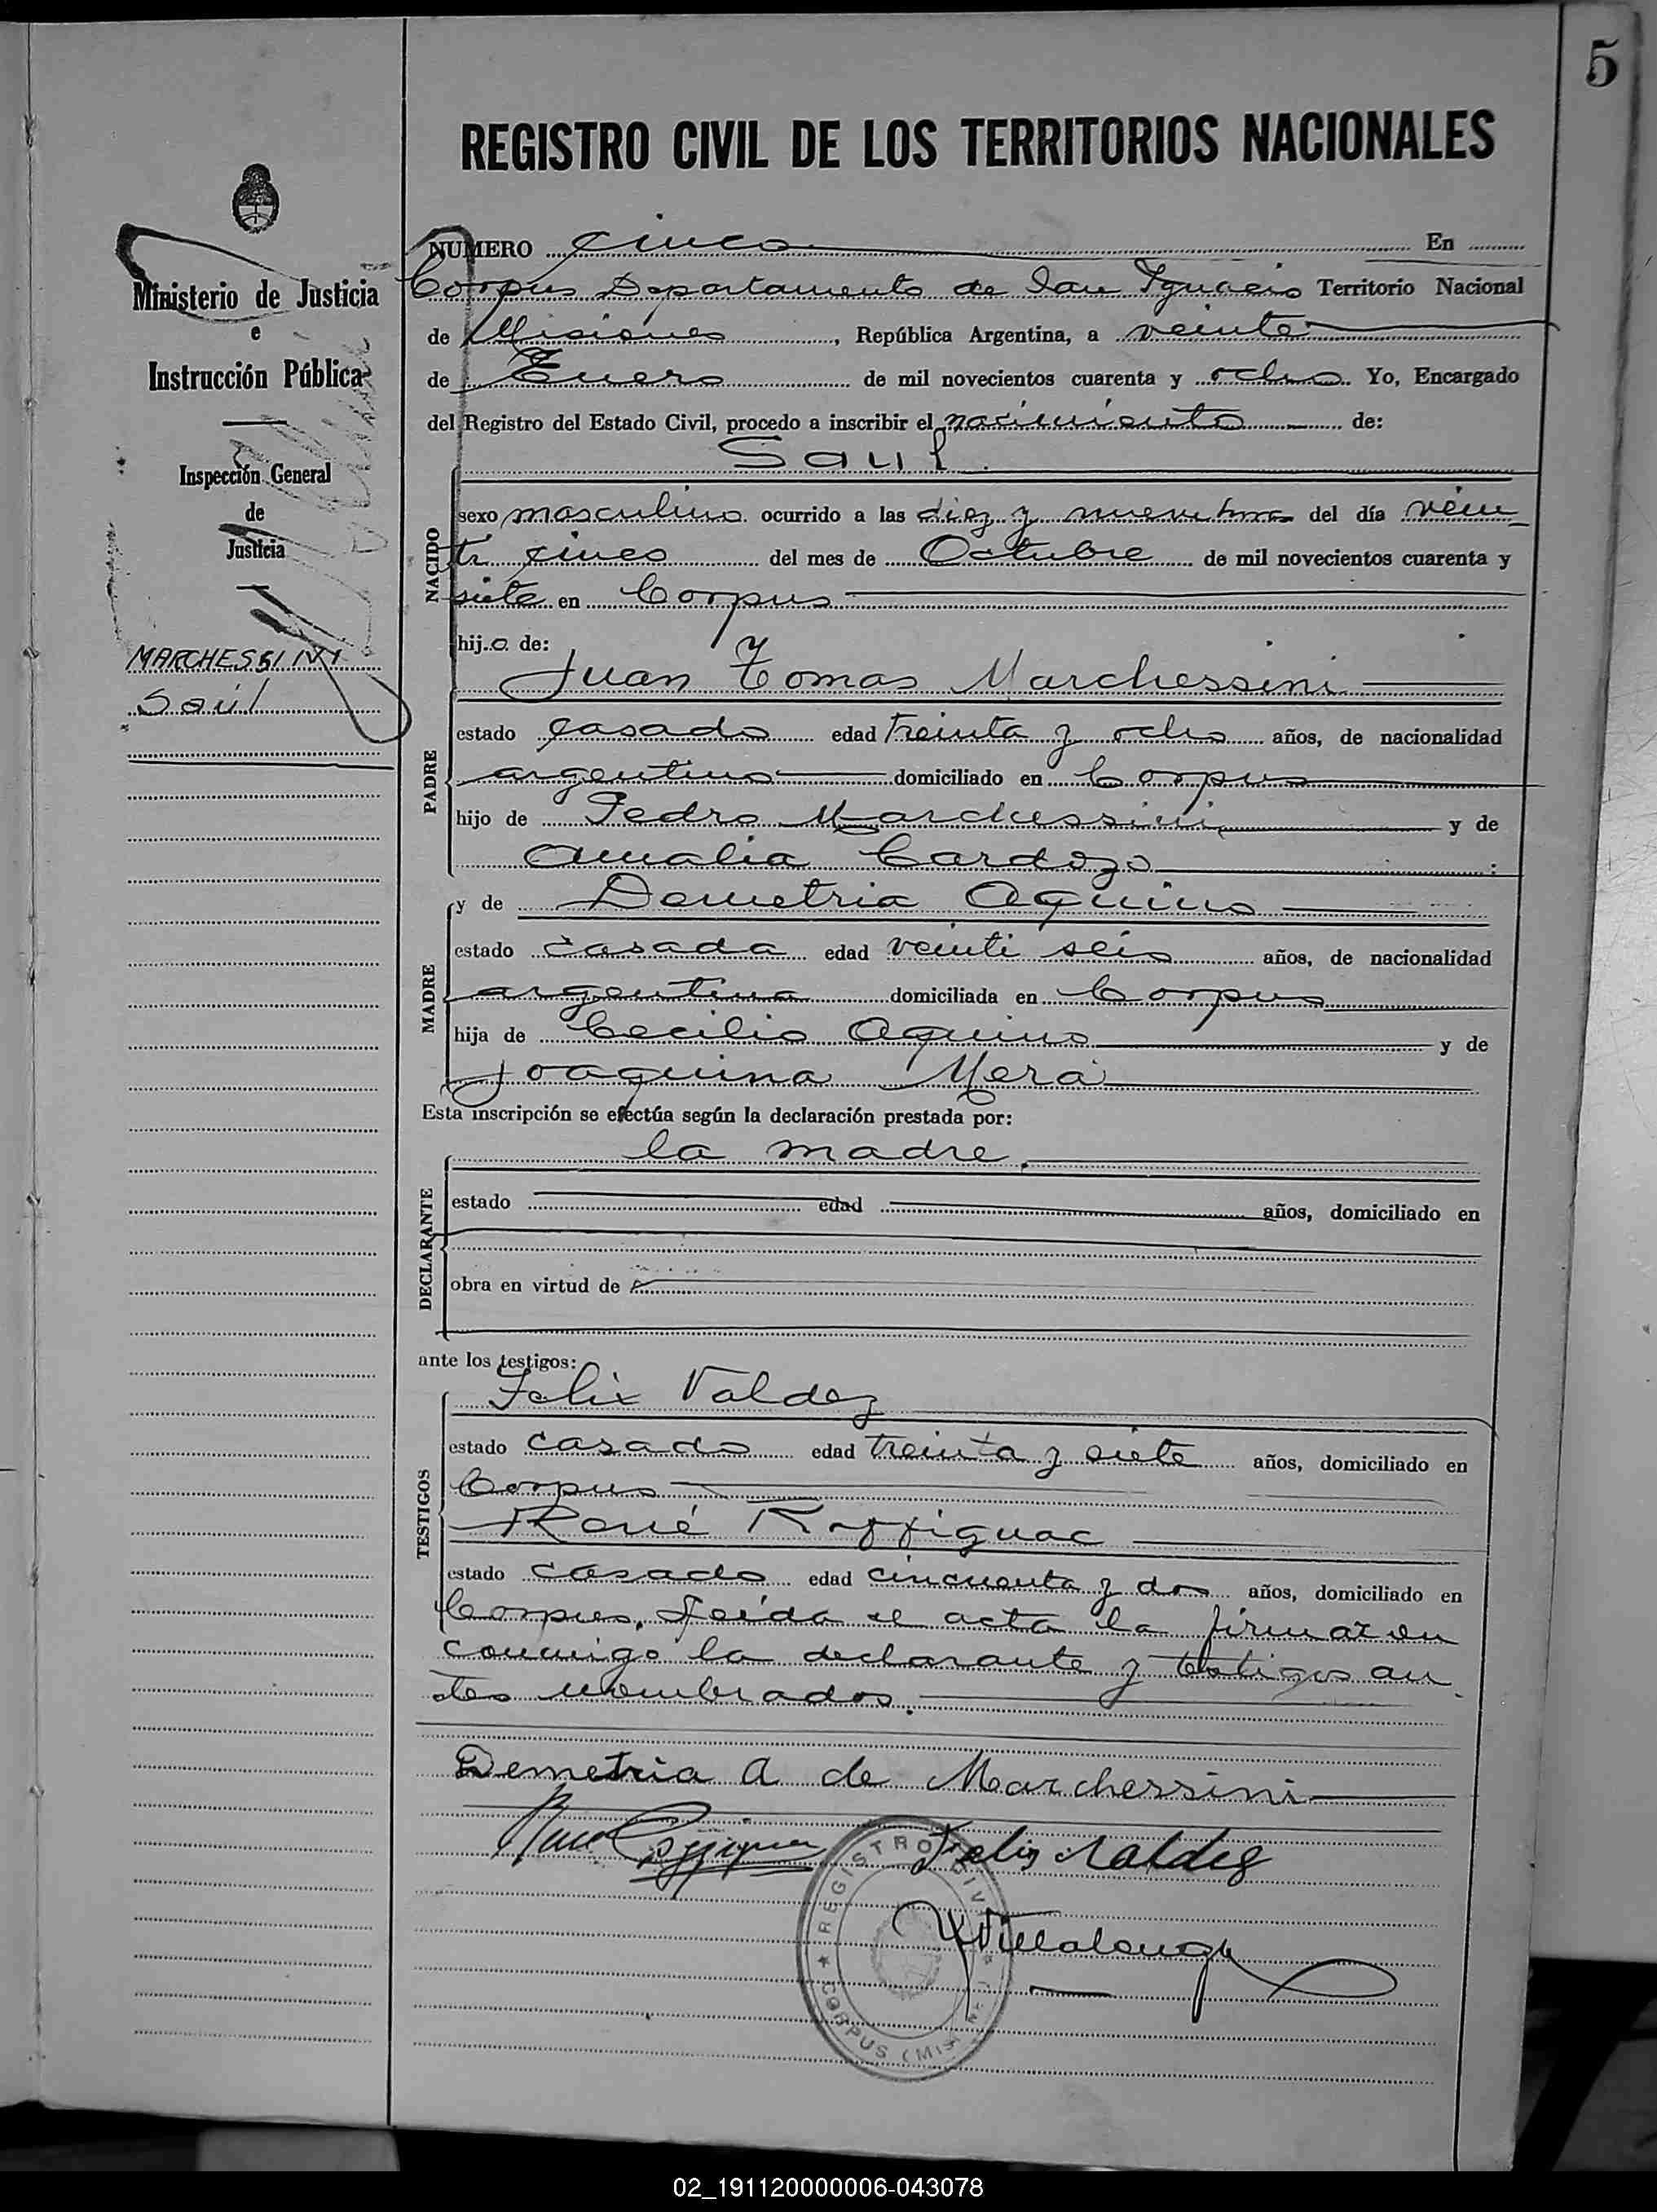 5
REGISTRO CIVIL DE LOS TERRITORIOS NACIONALES
Ministerio de Justicia
e
Instrucción Pública
Inspección General
de
Justicia
MARCHESSINI
Saúl
NUMERO cinco En
Corpus Departamento de San Ignacio Territorio Nacional
de Misiones, República Argentina, a veinte
de Enero de mil novecientos cuarenta y ocho. Yo, Encargado
del Registro del Estado Civil, procedo a inscribir el nacimiento de:
Saul
NACIDO
sexo masculino ocurrido a las diez y nueve horas del día vein
ti cinco del mes de Octubre de mil novecientos cuarenta y
siete en Corpus
hijo de:
Juan Tomas Marchessini
PADRE
estado casado edad treinta y ocho años, de nacionalidad
argentino domiciliado en Corpus
hijo de Pedro Marchessini y de
Amalia Cardozo:
y de Demetria Aquino
MADRE
estado casada edad veinti seis años, de nacionalidad
argentina domiciliada en Corpus
hija de Cecilio Aquino y de
Joaquina Mera
Esta inscripción se efectúa según la declaración prestada por:
la madre.
DECLARANTE
estado edad años, domiciliado en
obra en virtud de
ante los testigos:
Felix Valdez
TESTIGOS
estado casado edad treinta y siete años, domiciliado en
Corpus
René Roffignac
estado casado edad cincuenta y dos años, domiciliado en
Corpus. Leída el acta la firmaron
conmigo la declarante y testigos an
tes nombrados.
Demetria A de Marchessini
Felix Valdez
REGISTRO CIVIL
CORPUS (MIS
02_191120000006-043078